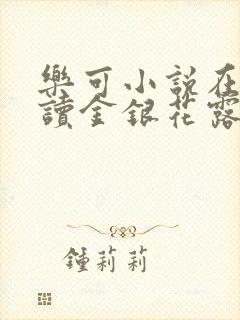 樂可小說在
讀金銀花露
鍾莉莉